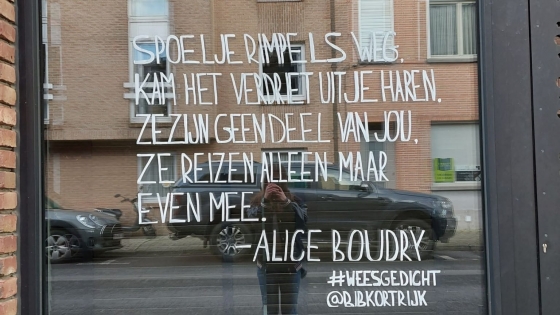 SPOEL JE RIMPELS WEG.
KAM HET VERDRIET UIT JE HAREN.
ZE ZIJN GEEN DEEL VAN JOU,
ZE REIZEN ALLEEN MAAR
EVEN MEE.
-ALICE BOUDRY
#WEESGEDICHT
@BIBKORTRIJK